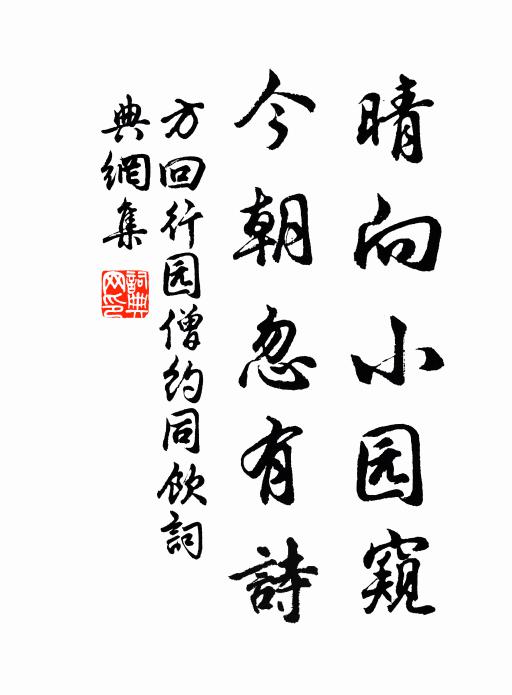 晴向小园窺
今朝忽有詩
方回行园僧約同飲詞
典網集
詞典
网印